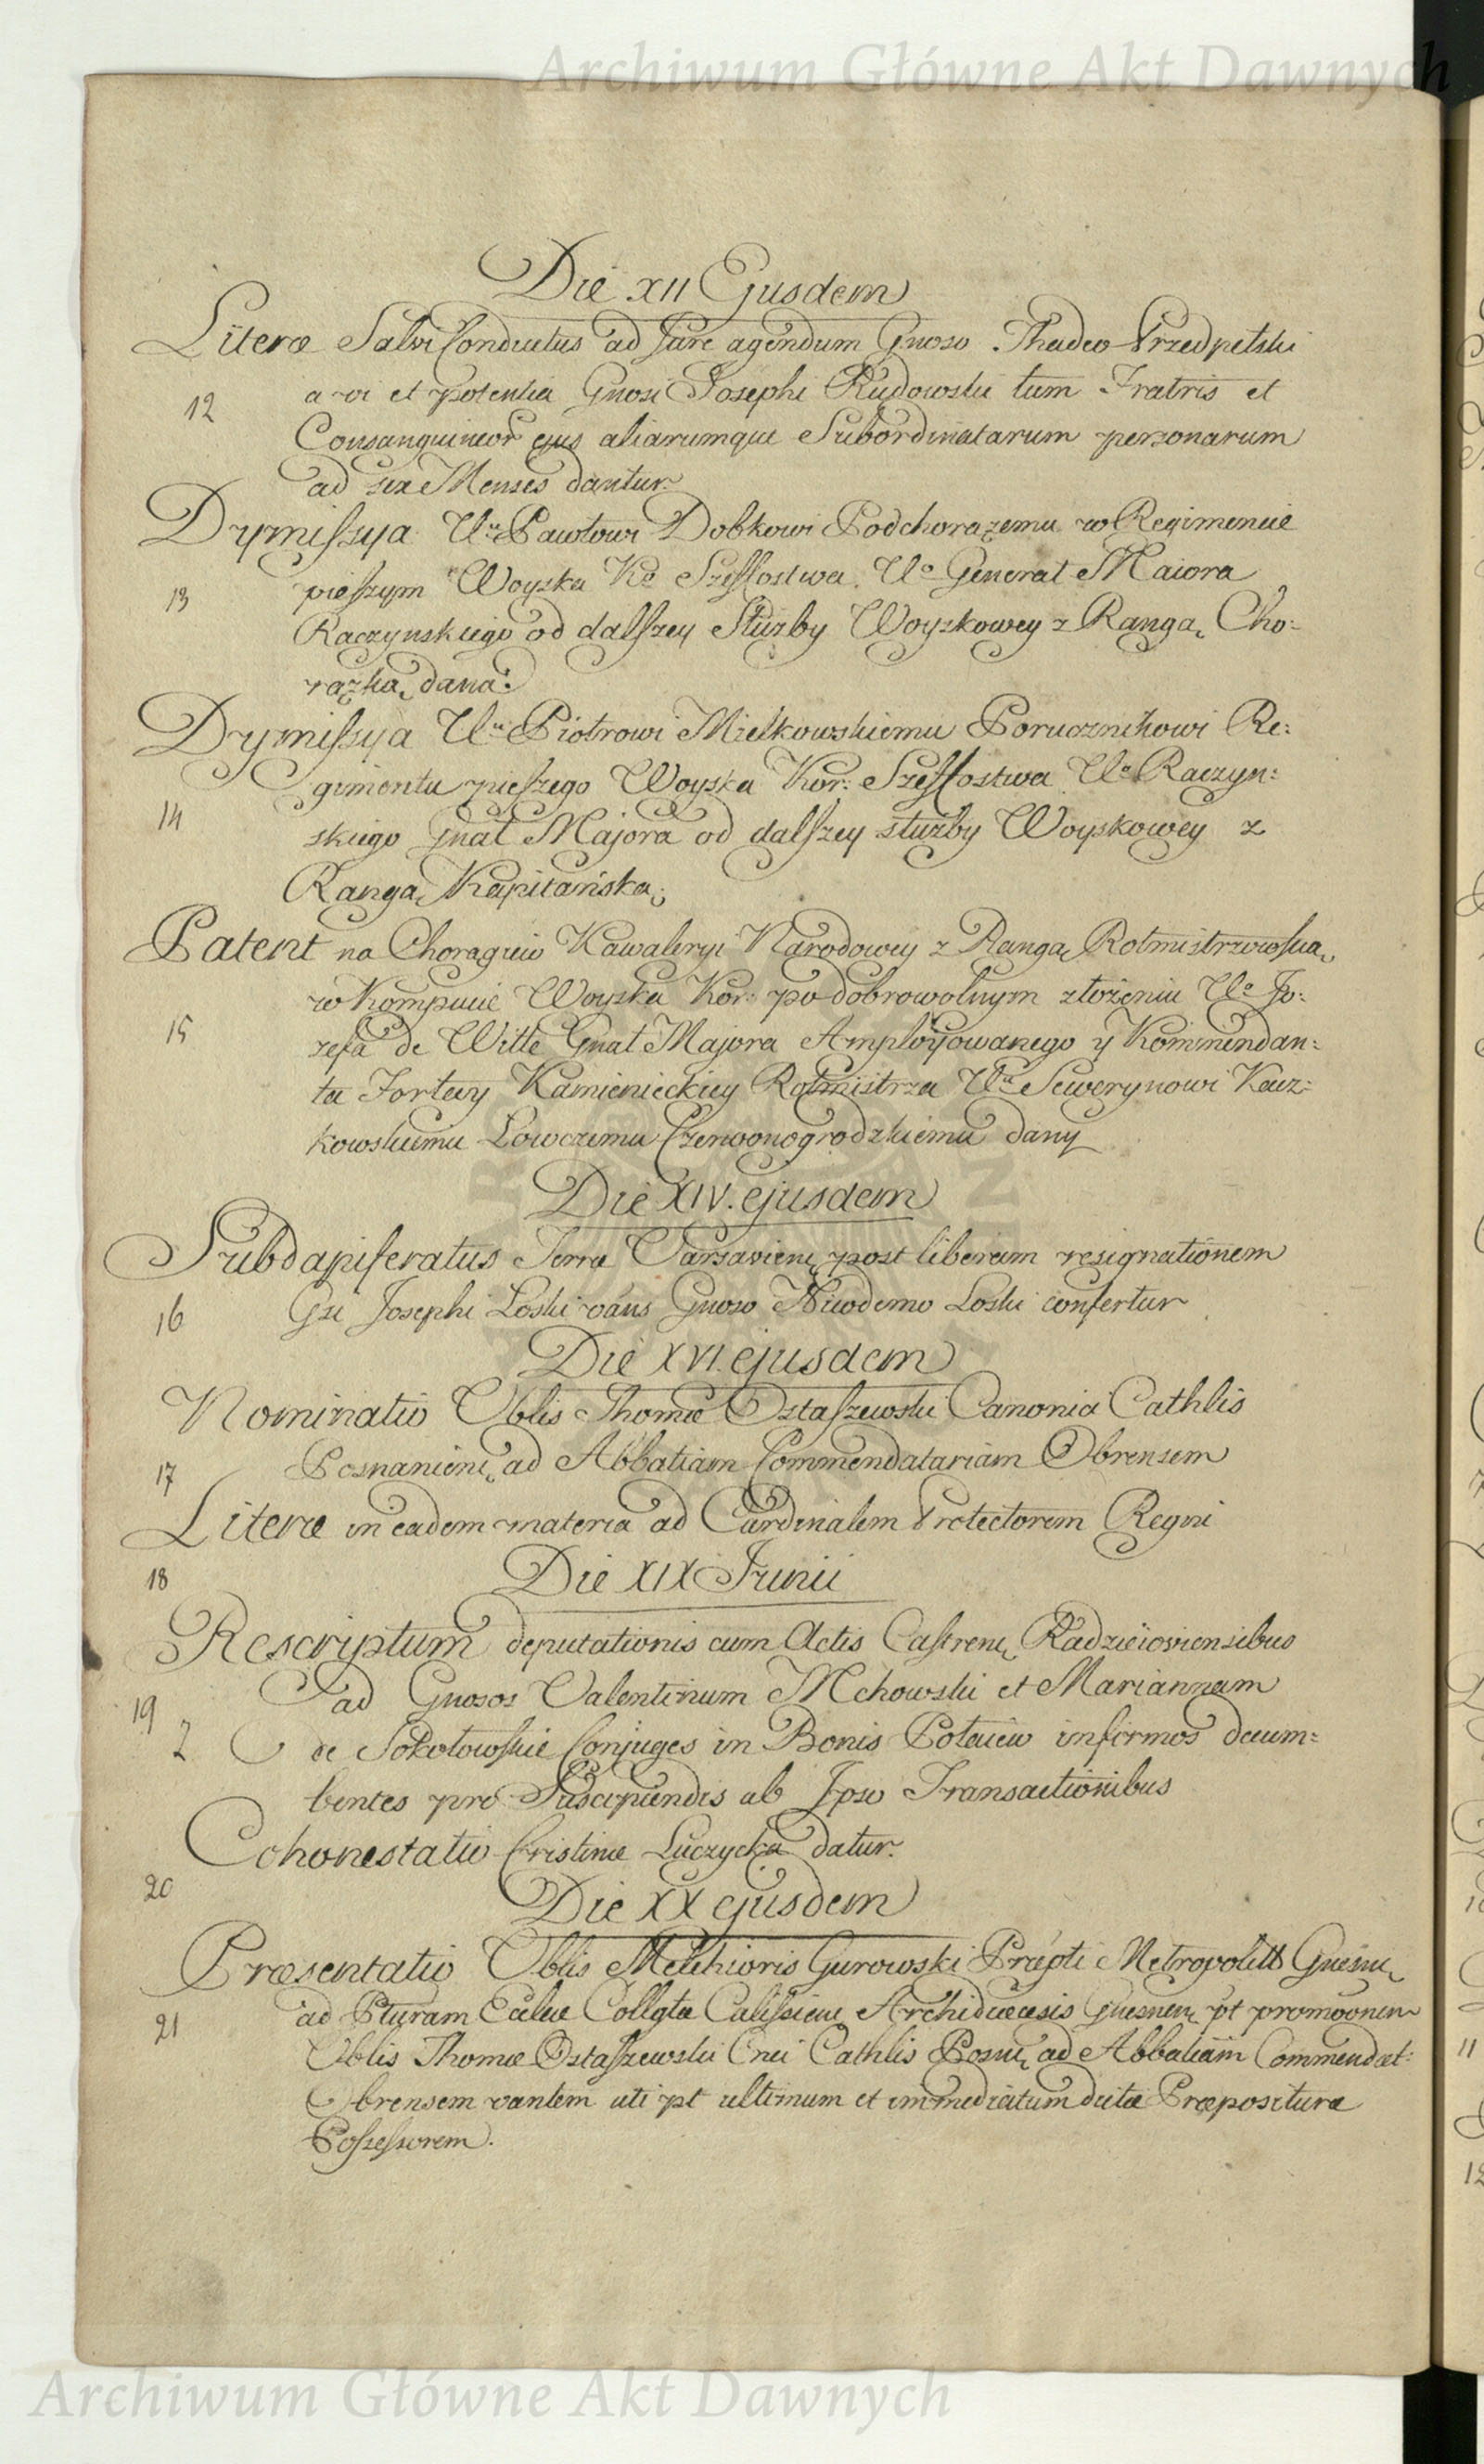 Archiwum Główne Akt Dawnych
Die XII Ejusdem
Literæ Salvi Conductus ad Jure agendum Gnoso Thadeo Przedpelski
12
a vi et potentia Gnosi Josephi Rudowski tum Fratris et
Consanguineor ejus aliarumque Subordinatarum personarum
ad sex Menses dantur.
Dymissya Ur Pawłowi Dobkowi Podchorążemu w Regimencie
13
pieszym Woyska Ko Szeffostwa Uo Generał Maiora
Raczynskiego od dalszey Służby Woyskowey z Rangą Cho=
rążką dana.
Dymissya Ur Piotrowi Mielkowskiemu Porucznikowi Re=
gimentu pieszego Woyska Kor: Szeffostwa Uo Raczyn=
14
skiego Gnał Majora od dalszey służby Woyskowey z
Rangą Kapitańską
Patent na Chorągiew Kawaleryi Narodowey z Rangą Rotmistrzowską
w Kompucie Woyska Kor: po dobrowolnym złożeniu Uo Jo=
15
zefa de Witte Gnał Majora Amployowanego y Kommendan=
ta Fortecy Kamienieckiey Rotmistrza Ur Sewerynowi Kacz=
kowskiemu Łowczemu Czerwonogrodzkiemu dany
Die XIV. ejusdem
Subdapiferatus Terræ Varsavien post liberam resignationem
16
Gsi Josephi Łoski vans Gnoso Nicodemo Łoski confertur
Die XVI. ejusdem
Nominatio Vblis Thomæ Ostaszewski Canonici Cathlis
17
Posnanien ad Abbatiam Commendatariam Obrensem
Literæ in eadem materia ad Cardinalem Protectorem Regni
18
Die XIX Junii
Rescriptum deputationis cum Actis Castren Radziejoviensibus
19
ad Gnosos Valentinum Mchowski et Mariannam
de Sokołowskie Conjuges in Bonis infirmos decum=
bentes pro Suscipiendis ab Ipso Transactionibus
Cohonestatio Cristinæ Luczycka datur.
20
Die XX ejusdem
Præsentatio Vblis Melchioris Gurowski Præpti Metropolit Gnesnen
21
ad Pturam Eccliæ Collgtæ Calissien Archidiæcesis Gnesnen pt promoonem
Vblis Thomæ Ostaszewski Cnci Cathlis Posn ad Abbatiam Commendat:
Obrensem vantem uti pt ultimum et immediatum dictæ Præpositure
Possessorem.
Archiwum Główne Akt Dawnych